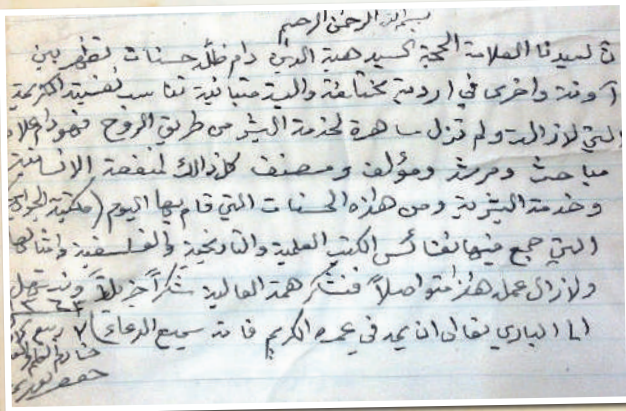 بسم الله الرحمن الرحيم
ان لسيدنا العلامة الحجة السيد هبة الدين دام ظله حسنات تظهر بين
آونة واخرى في اردية مختلفة والبسة متباينة تناسب نفسيته الكريمة
التي لازالت ولم تزل ساهرة لخدمة البشر من طريق الروح فهو دام علاه
مباحث ومرشد ومؤلف ومصنف كل ذالك لمنفعة الانسانية
وخدمة البشرية ومن هذه الحسنات التي قام بها اليوم (مكتبة الجوادين
التي جمع فيها نفائس الكتب العلمية والتاريخية والفلسفية وامثالها
ولازال عمله هذا متواصلاً فنشكر همته العالية شكراً جزيلاً ونبتهل
الى الباري تعالى ان يمد في عمره الكريم فانه سميع الدعاء ٧ ربيع
خادم العلم